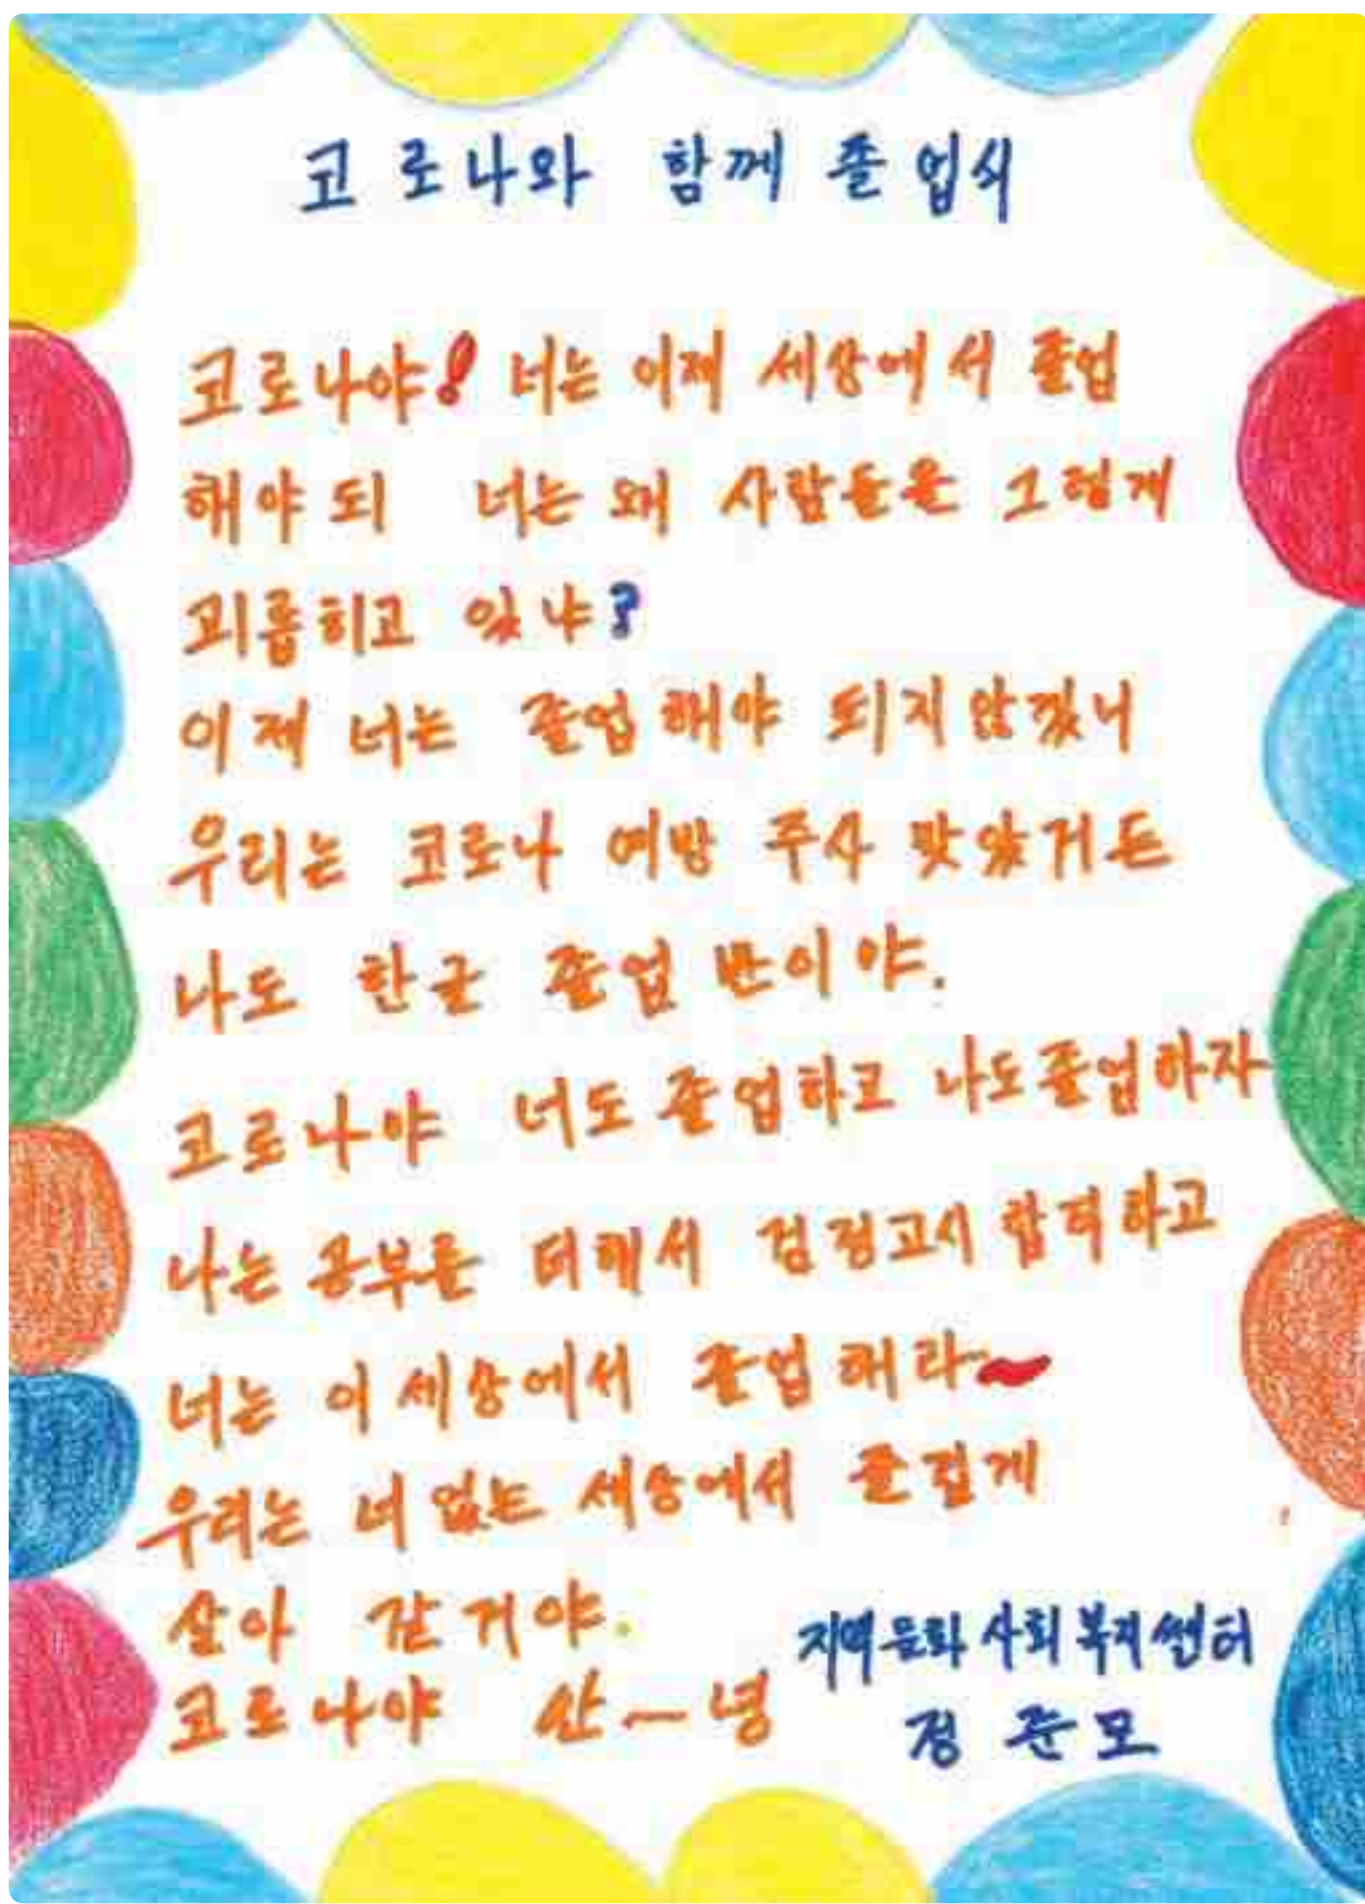 코로나와 함께 졸업식
코로나야! 너는 이제 세상에서 졸업
해야 되 너는 왜 사람들을 그렇게
괴롭히고 있냐?
이제 너는 졸업해야 되지 않겠니
우리는 코로나 예방 주사 맞았거든
나도 한글 졸업 반이야.
코로나야 너도 졸업하고 나도졸업하자
나는 공부를 더해서 검정고시 합격하고
너는 이 세상에서 졸업 해라~
우리는 너 없는 세상에서 즐겁게
살아 갈 거야.
코로나야 안~녕
지역문화 사회복지쎈터
정준모